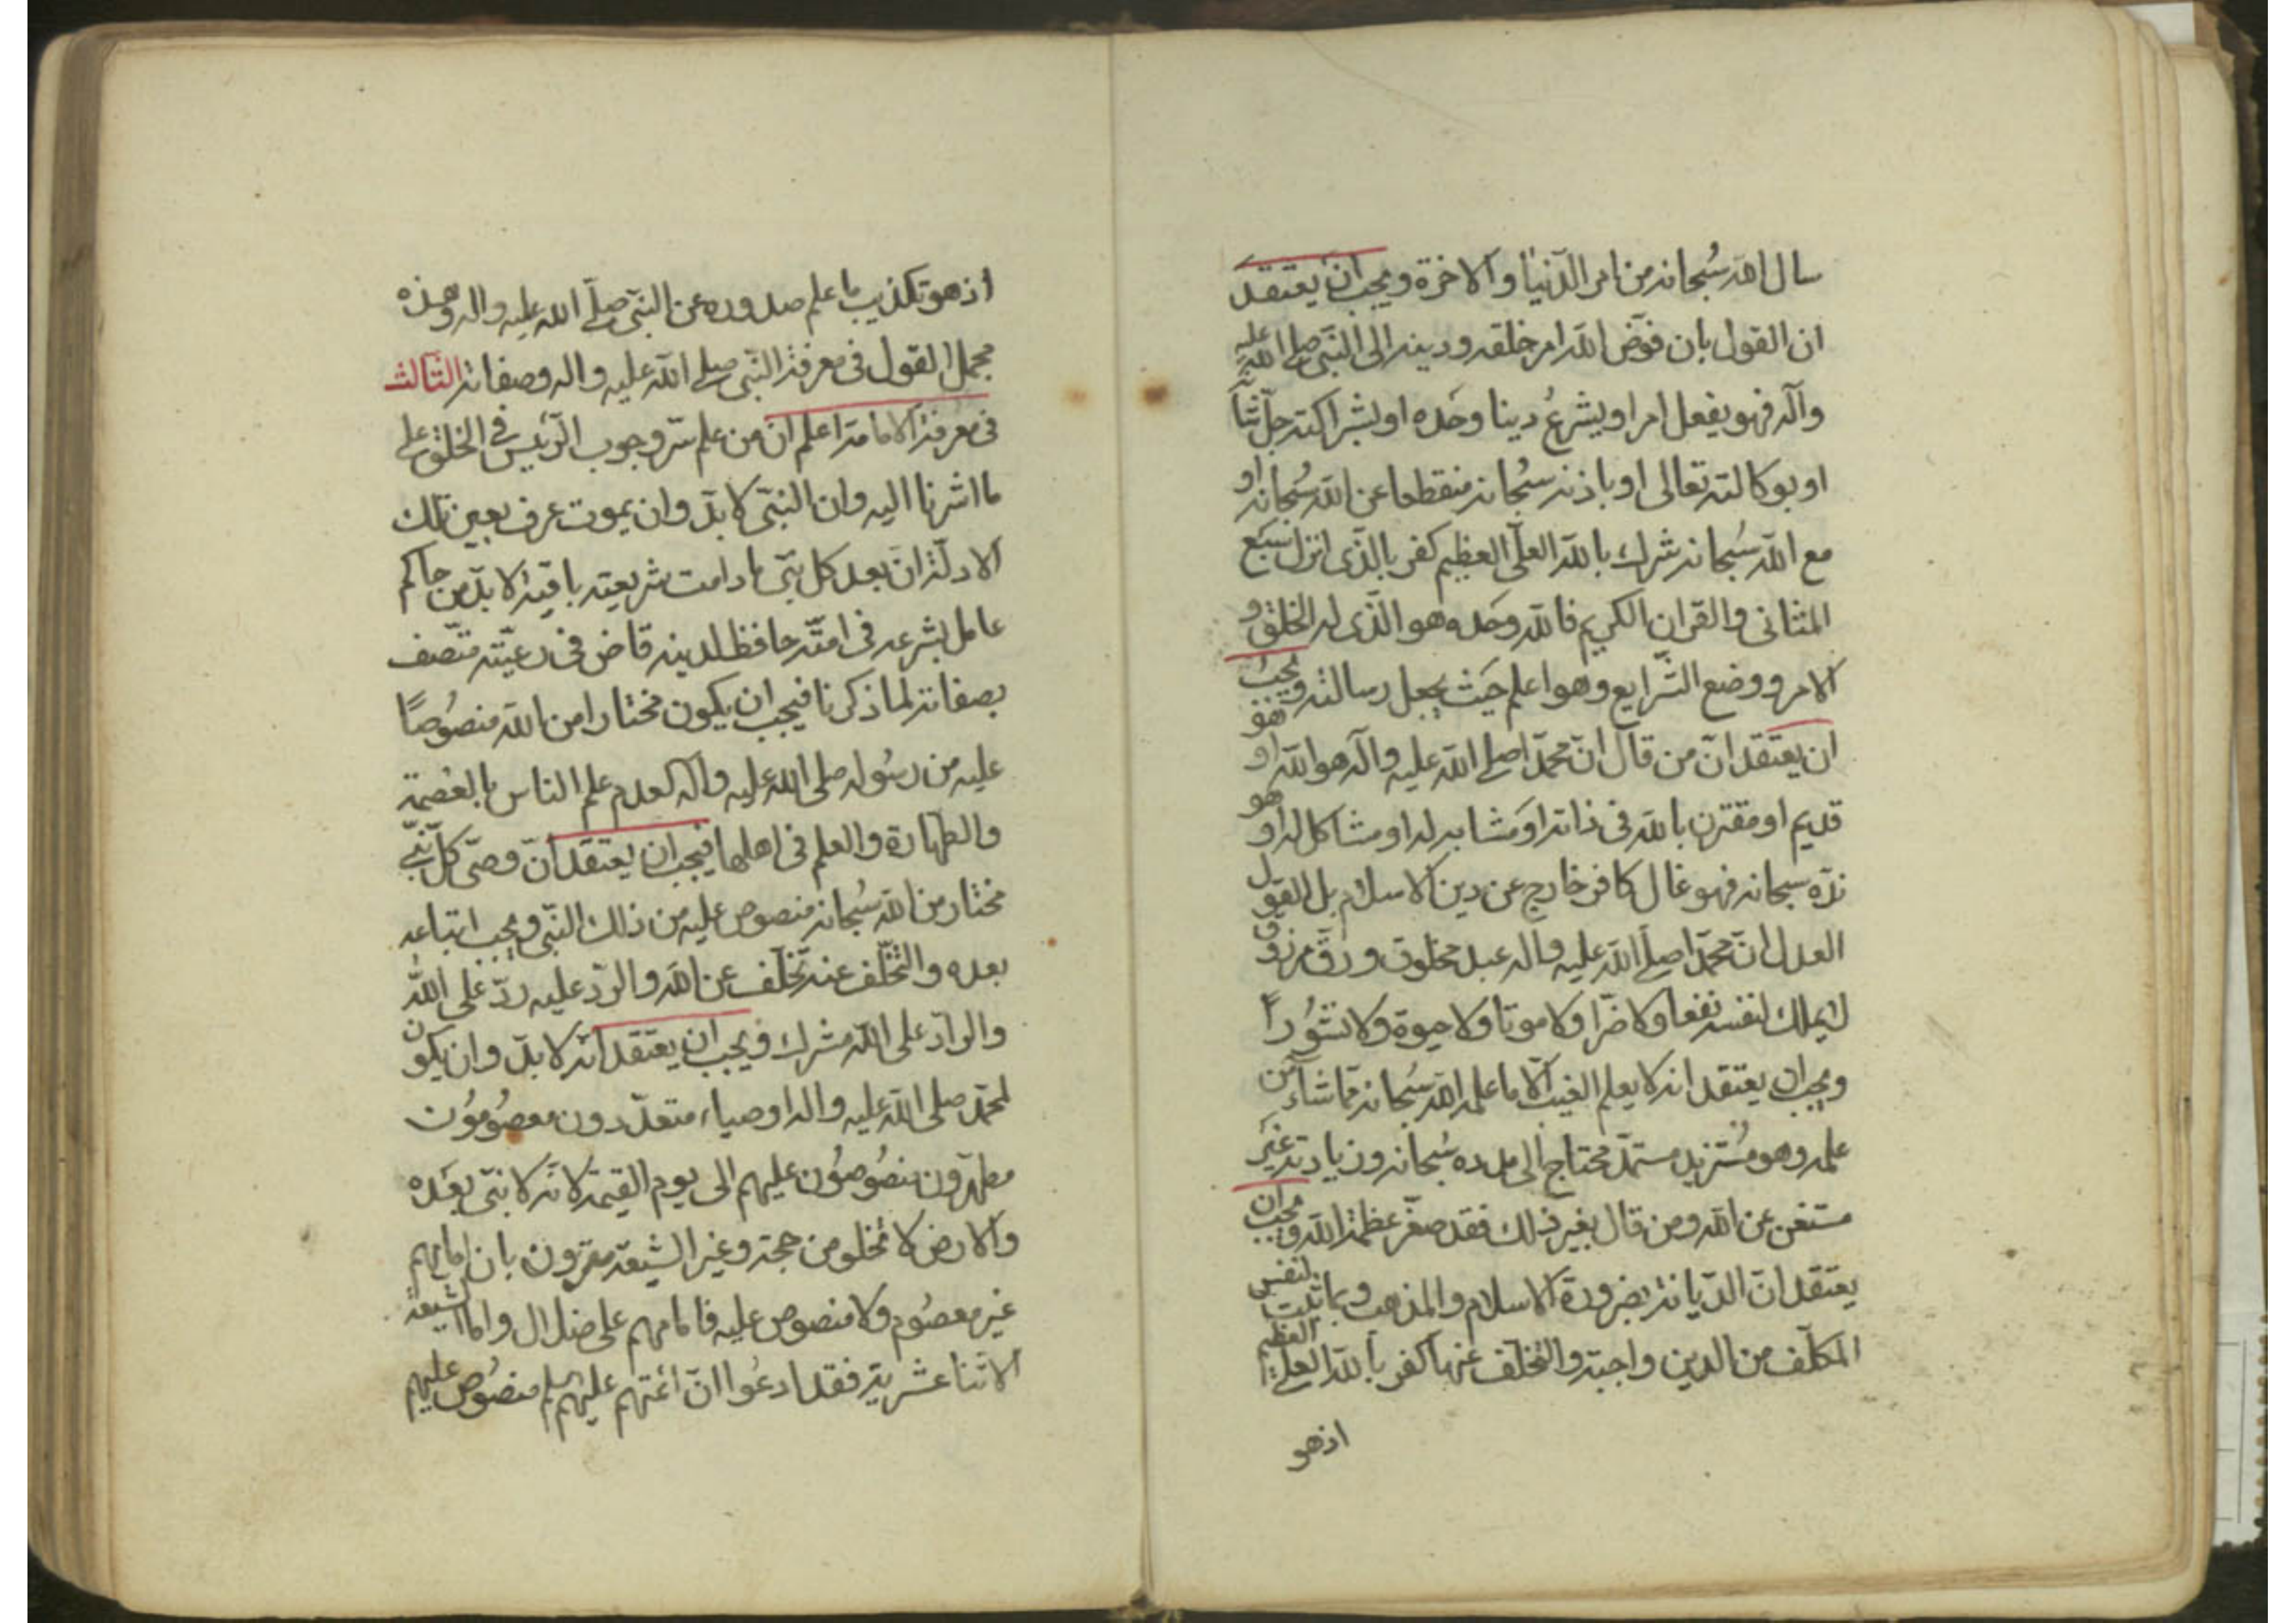 سال الله سبحانه من امر الدّنيا والاخرة ويجب ان يعتقد
ان القول بان فوّض الله امر خلقه ودينه الى النّبى صلى الله عليه
وآله فهو يفعل امرا ويشرعُ دينا وحده او بشراكته جلّ ثنآ
او بوكالته تعالى او باذنه سبحانه منقطعا عن الله سُبحانه او
مع الله سُبحانه شرك بالله العلّى العظيم كفر بالّذى انزل سبع
المثانى والقران الكريم فالله وحده هو الّذى له الخلق و
الامر ووضع الشّرايع وهو اعلم حيث يجعل رسالته ويجب
ان يعتقد انّ من قال انّ محمّدا صلى الله عليه وآله هو الله او هو
قديم او مقترن بالله فى ذاته او مشابه له او مشاكل له او هو
ندّه سبحانه فهو غال كافر خارج عن دين الاسلام بل القول
العدل انّ محمّدا صلى الله عليه وآله عبد مخلوق ورقّ مرزوق
لايملك لنفسه نفعا ولا ضرّا ولا موتا ولا حيوة ولا نشُوراً
ويجب ان يعتقد انه لا يعلم الغيب الّا ما علمه الله سُبحانه مما شاء من
علمه وهو مُستزيد مستمدّ محتاج الى مدده سُبحانه وزيادته غير
مستغن عن الله ومن قال بغير ذلك فقد صغّر عظمة الله ويجب ان
يعتقد انّ الدّيانة بضرورة الاسلام والمذهب وبما ثبت لنفس
المكلّف من الدين واجبة والتخلف عنها كفر بالله العلى العظيم
اذهو
اذهو تكذيب ما علم صدوره عن النبّى صلّى الله عليه واله وهذه
مجمل القول فى معرفة النّبى صلى الله عليه واله وصفاته الثّالث
فى معرفة الامامة اعلم انّ من علم سرّ وجوب الرّئيس فى الخلق على
ما اشرنا اليه وان النبّى لا بدّ وان يموت عرف بعين تلك
الادلّة ان بعد كل نبّى ما دامت شريعته باقية لا بدّ من حاكم
عامل بشرعه فى امتّه حافظ لدينه قاض فى رعيّته متّصف
بصفاته لما ذكرنا فيجب ان يكون مختارا من الله منصُوصًا
عليه من رسُوله صلى الله عليه وآله لعدم علم الناس بالعصمة
والطهارة والعلم فى اهلها فيجب ان يعتقد انّ وصّى كلّ نبّى
مختار من الله سُبحانه منصوص عليه من ذلك النبّى ويجب اتباعه
بعده والتخّلف عنه تخلّف عن الله والرّد عليه ردّ على الله
والرآدّ على الله مشرك ويجب ان يعتقد انّه لا بدّ وان يكون
لمحمّد صلى الله عليه واله اوصياء متعدّدون معصُومُون
مطهّرون منصُوصُون عليهم الى يوم القيمة لانّه لا نبّى بعَده
والارض لا تخلو من حجة وغير الشيعة مقرّون بان امامهم
غير معصُوم ولا منصوص عليه فامامهم على ضلال واما الشيعة
الاثنا عشرية فقد ادعُوا انّ ائمّتهم عليهم منصُوص عليهم